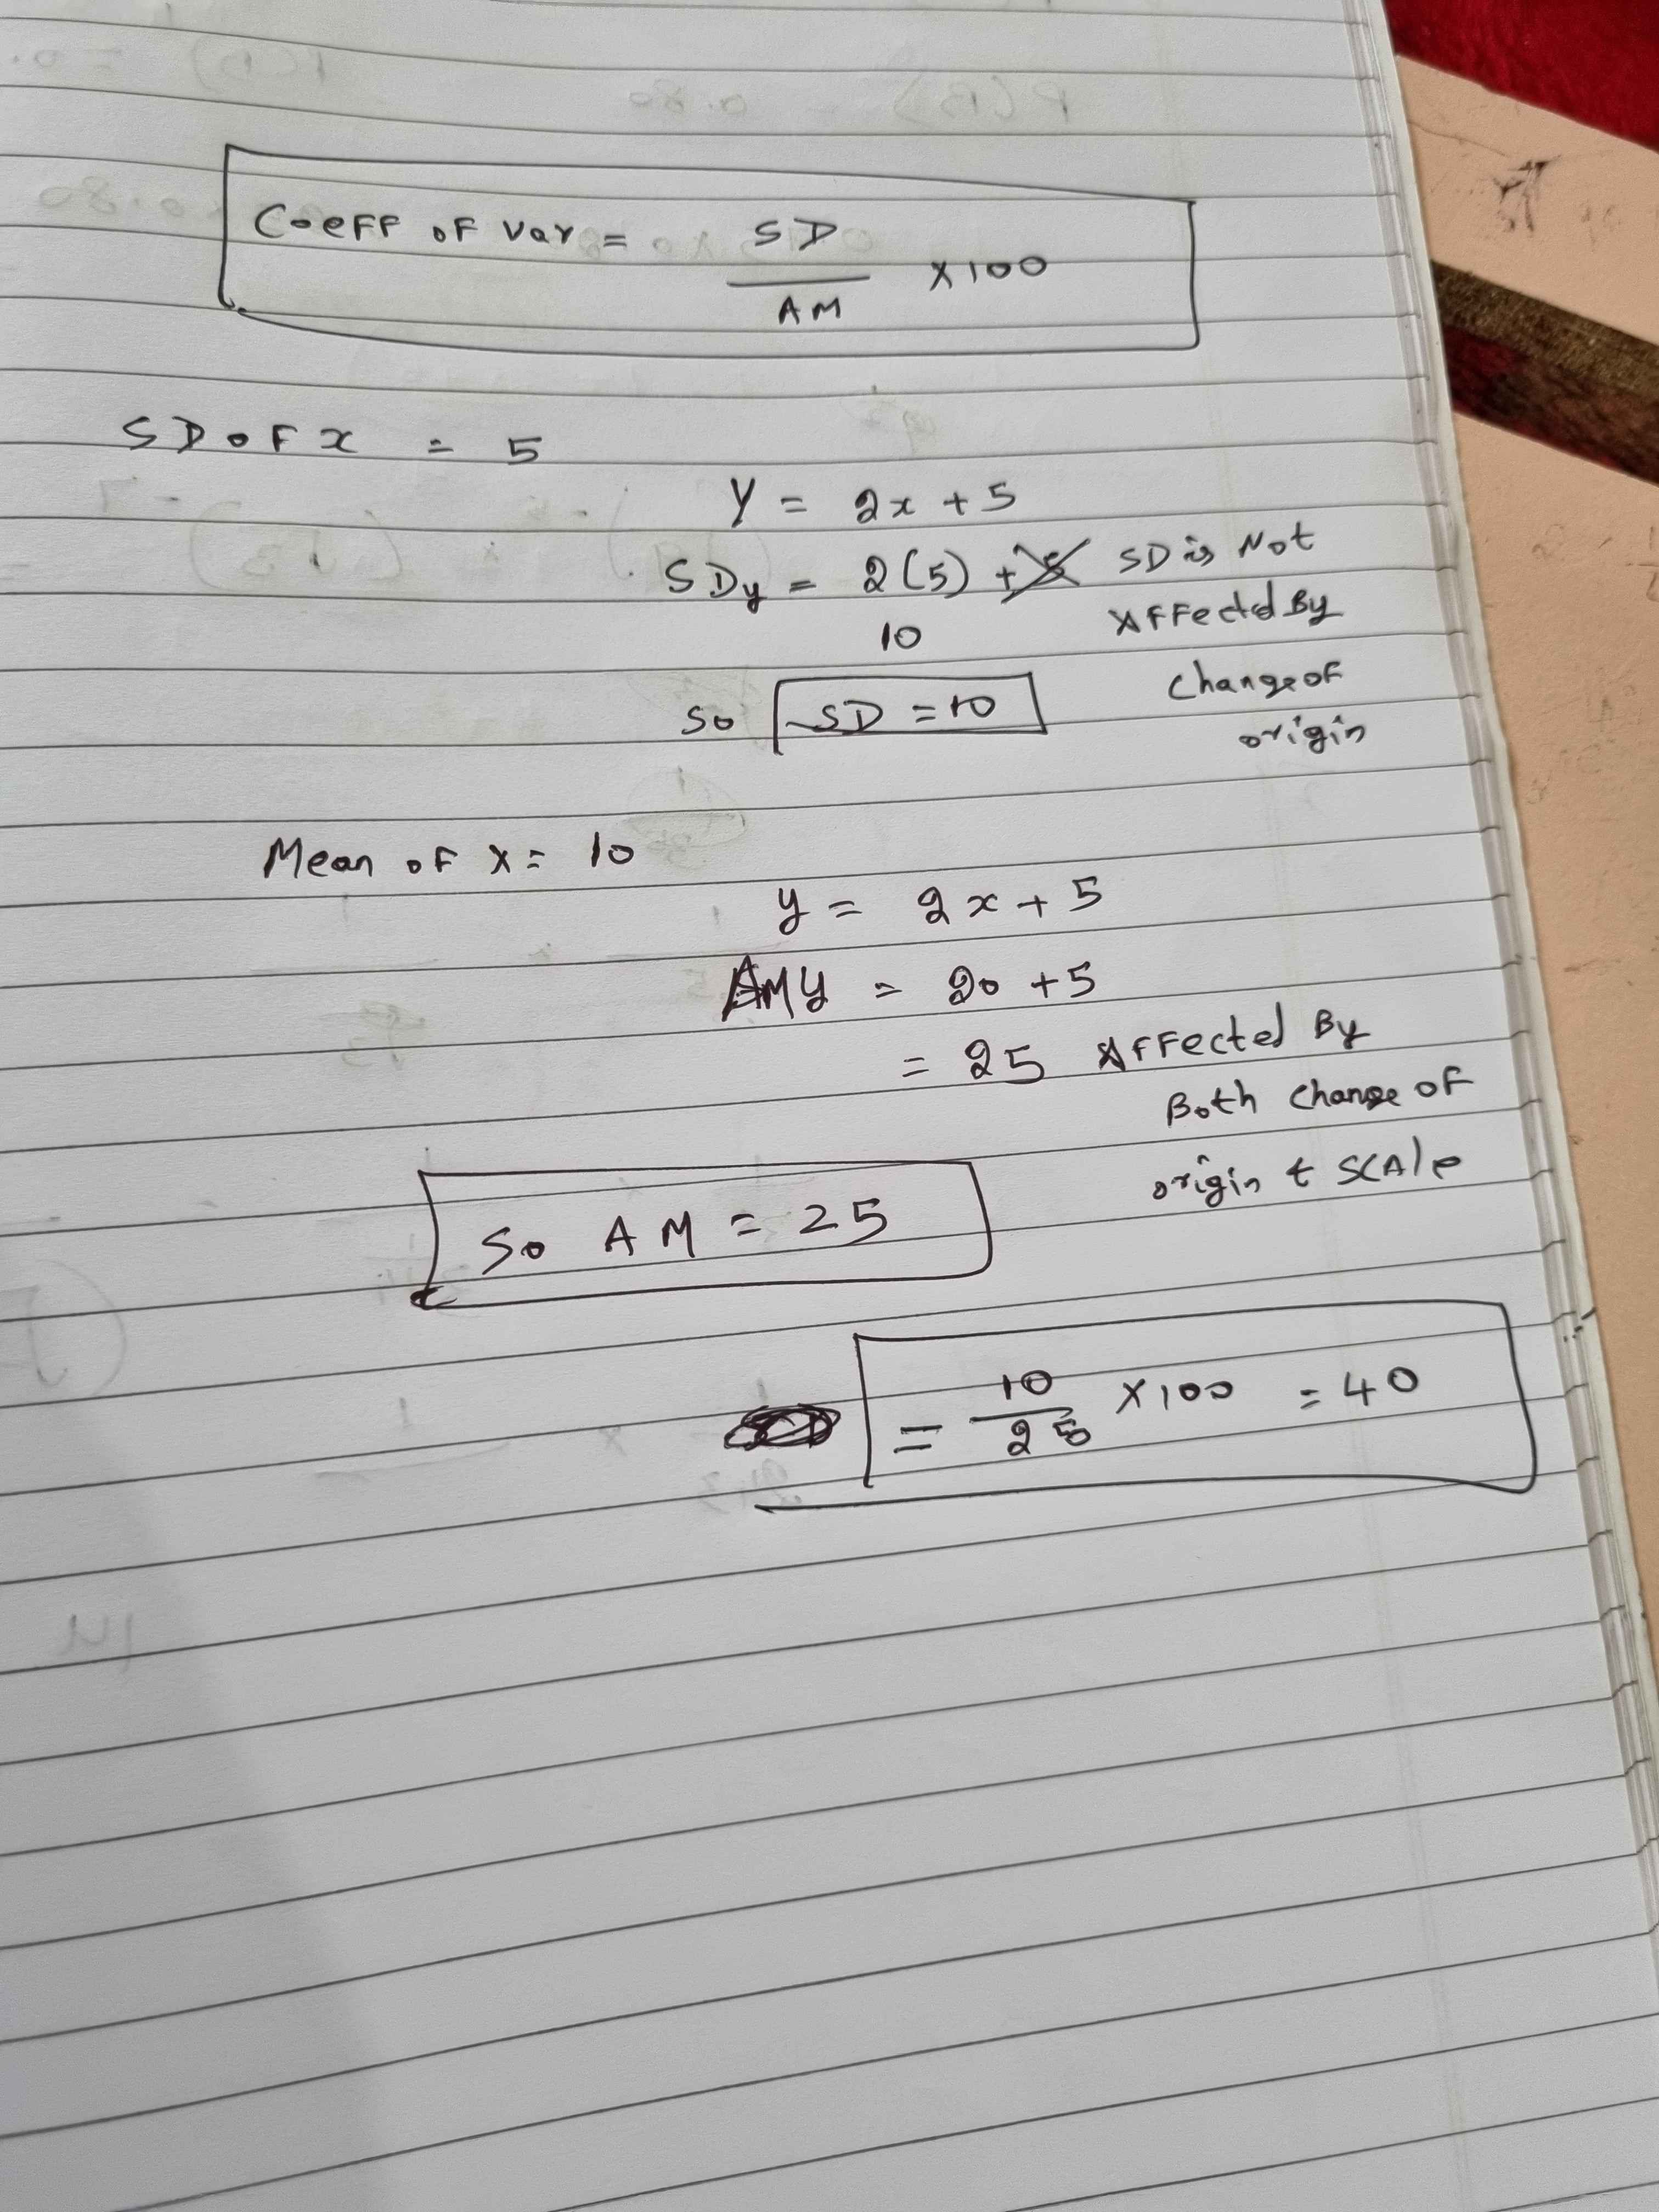 Coeff of var = SD
AM
X 100
SD of x = 5
Y = 2x + 5
SDy = 2(5) + 5 SD is Not
10 Affected By
so SD = 10 change of
origin
Mean of X = 10
y = 2x + 5
AMY = 20 + 5
= 25 Affected By
Both change of
origin & SCAle
So AM = 25
= 10
25
X 100 = 40